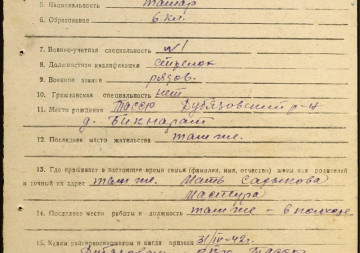 5. Национальность татар
6. Образование 6 кл.
7. Военно-учетная специальность №1
8. Должностная квалификация стрелок
9. Военное звание рядов.
10. Гражданская специальность нет
11. Место рождения ТАССР Дубъязовский р-н
д. Бикнарат
12. Последнее место жительства там же.
13. Где проживает в настоящее время семья (фамилия, имя, отчество) жены или родителей
и точный их адрес там же. Мать Садыкова
Мастура
14. Последнее место работы и должность там же – в колхозе
15. Каким райвоенкоматом и когда призван 31/IV-42г.
РВК ТАССР